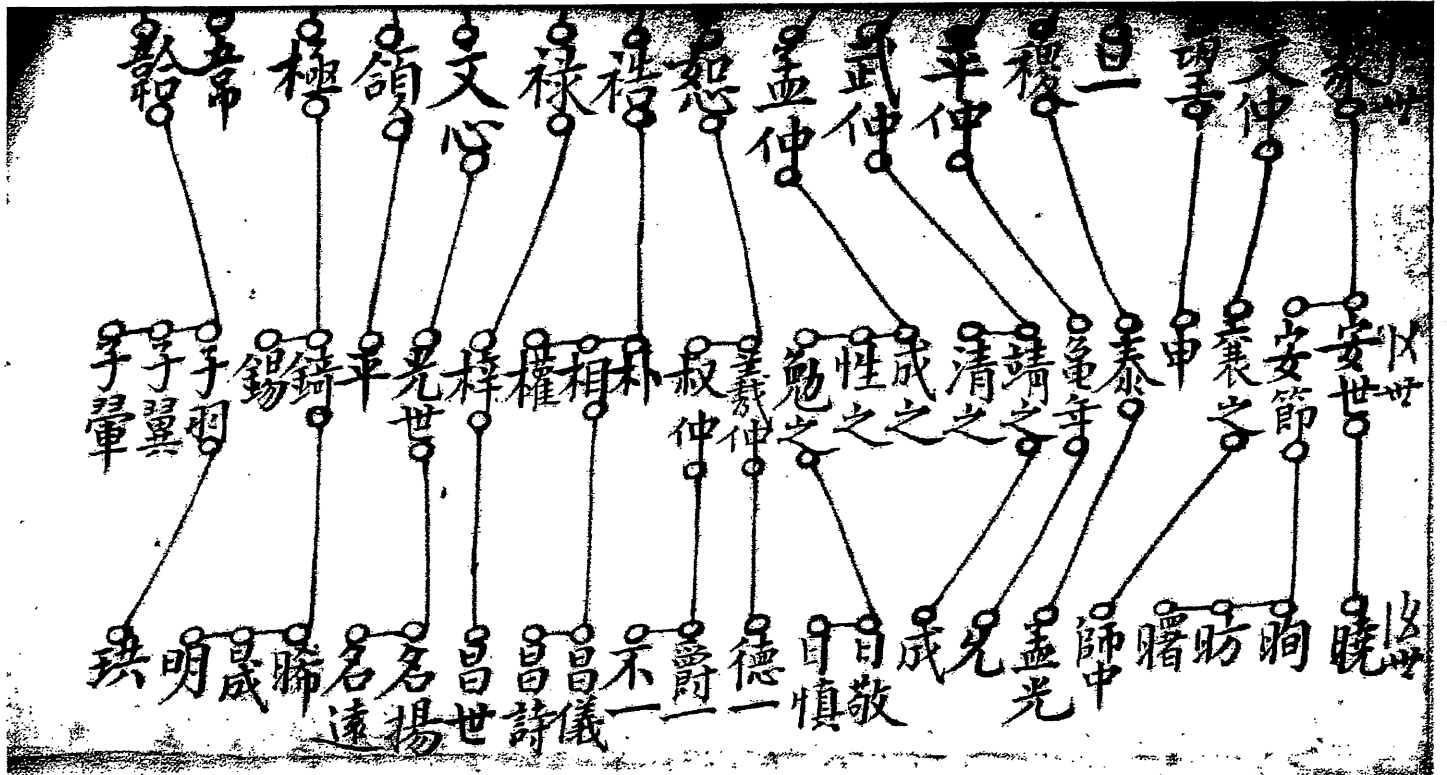 文仲
望
旦一
穩
平仲
武仲
孟仲
恕
禧
祿
文心
頜
極
安世
安節
襄之
申
泰
龜年
靖之
清之
成之
性之
勉之
叔仲
朴
相
權
梓
光世
平
錡
錫
子羽
子翼
子翬
曉
晌
昉
曙
師中
孟光
光
成
日敬
日慎
德一
爵一
不一
昌儀
昌詩
昌世
名揚
名遠
晞
晟
明
珙